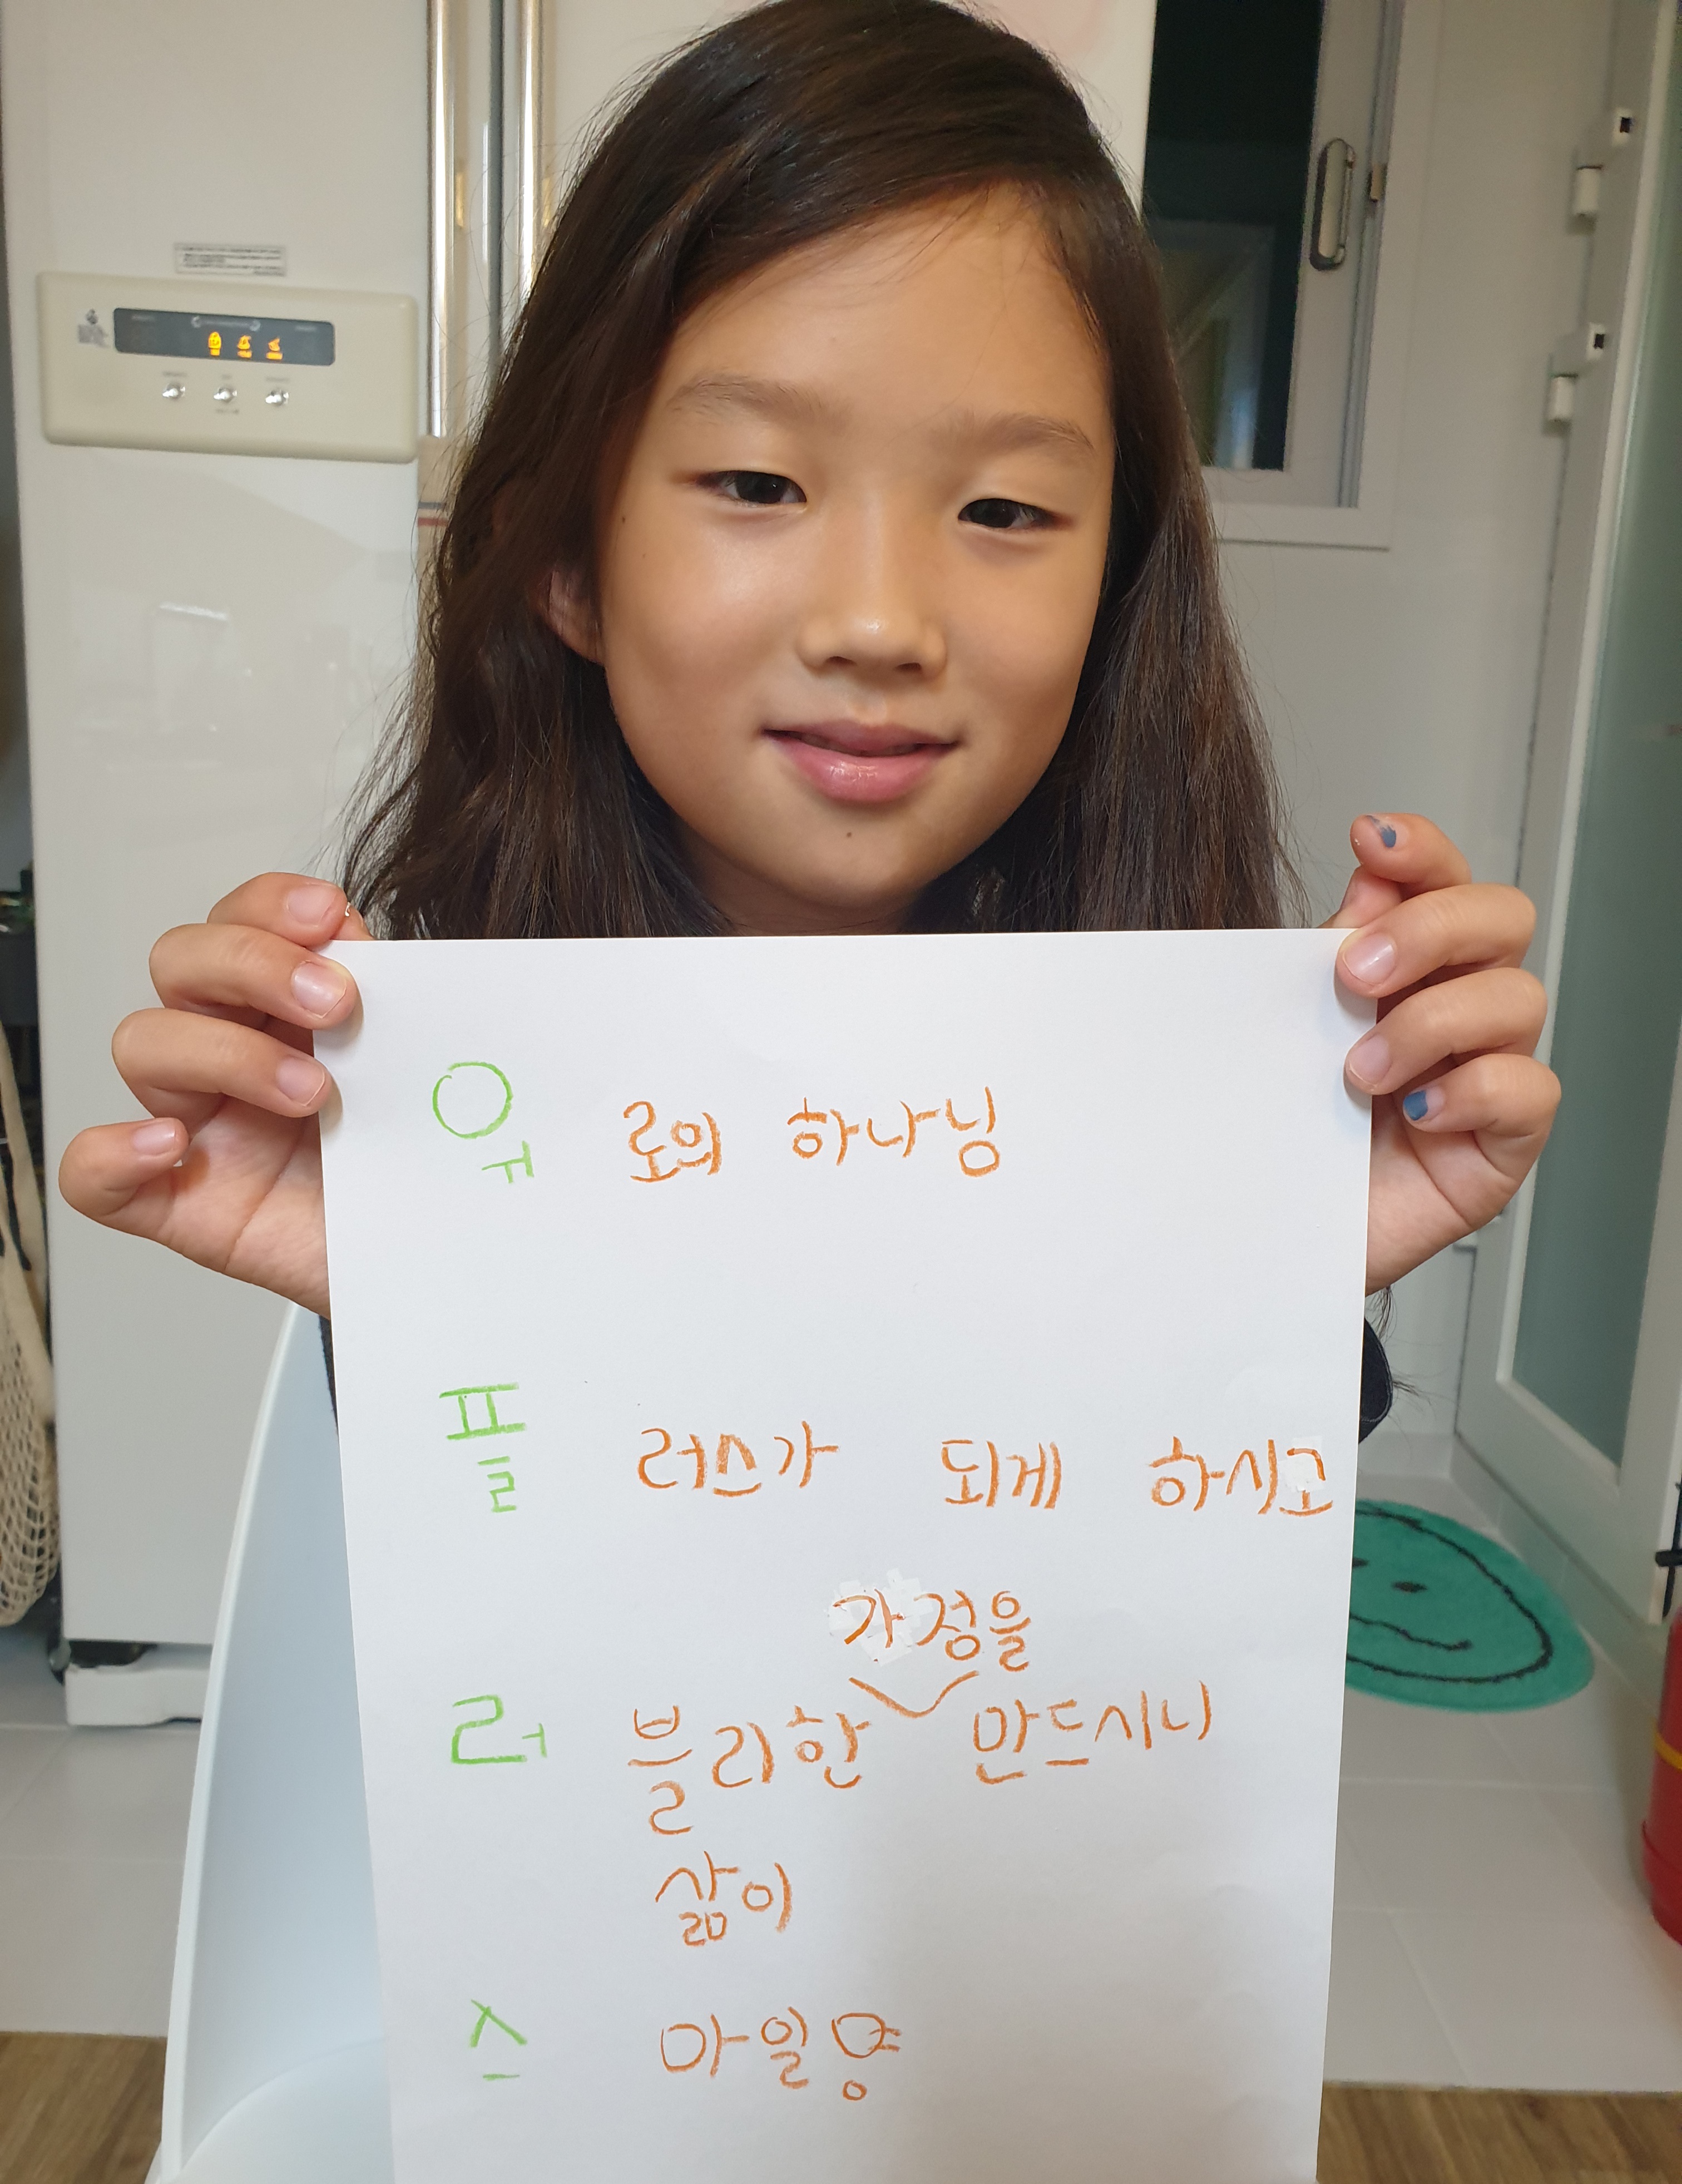 유 로의 하나닝
플 러스가 되게 하시고
가정을
러 블리한 만드시니
삶이
스 마일양